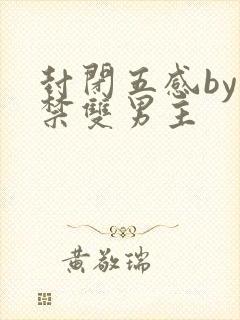 封閉五感by
禁雙男主
黃敬瑞